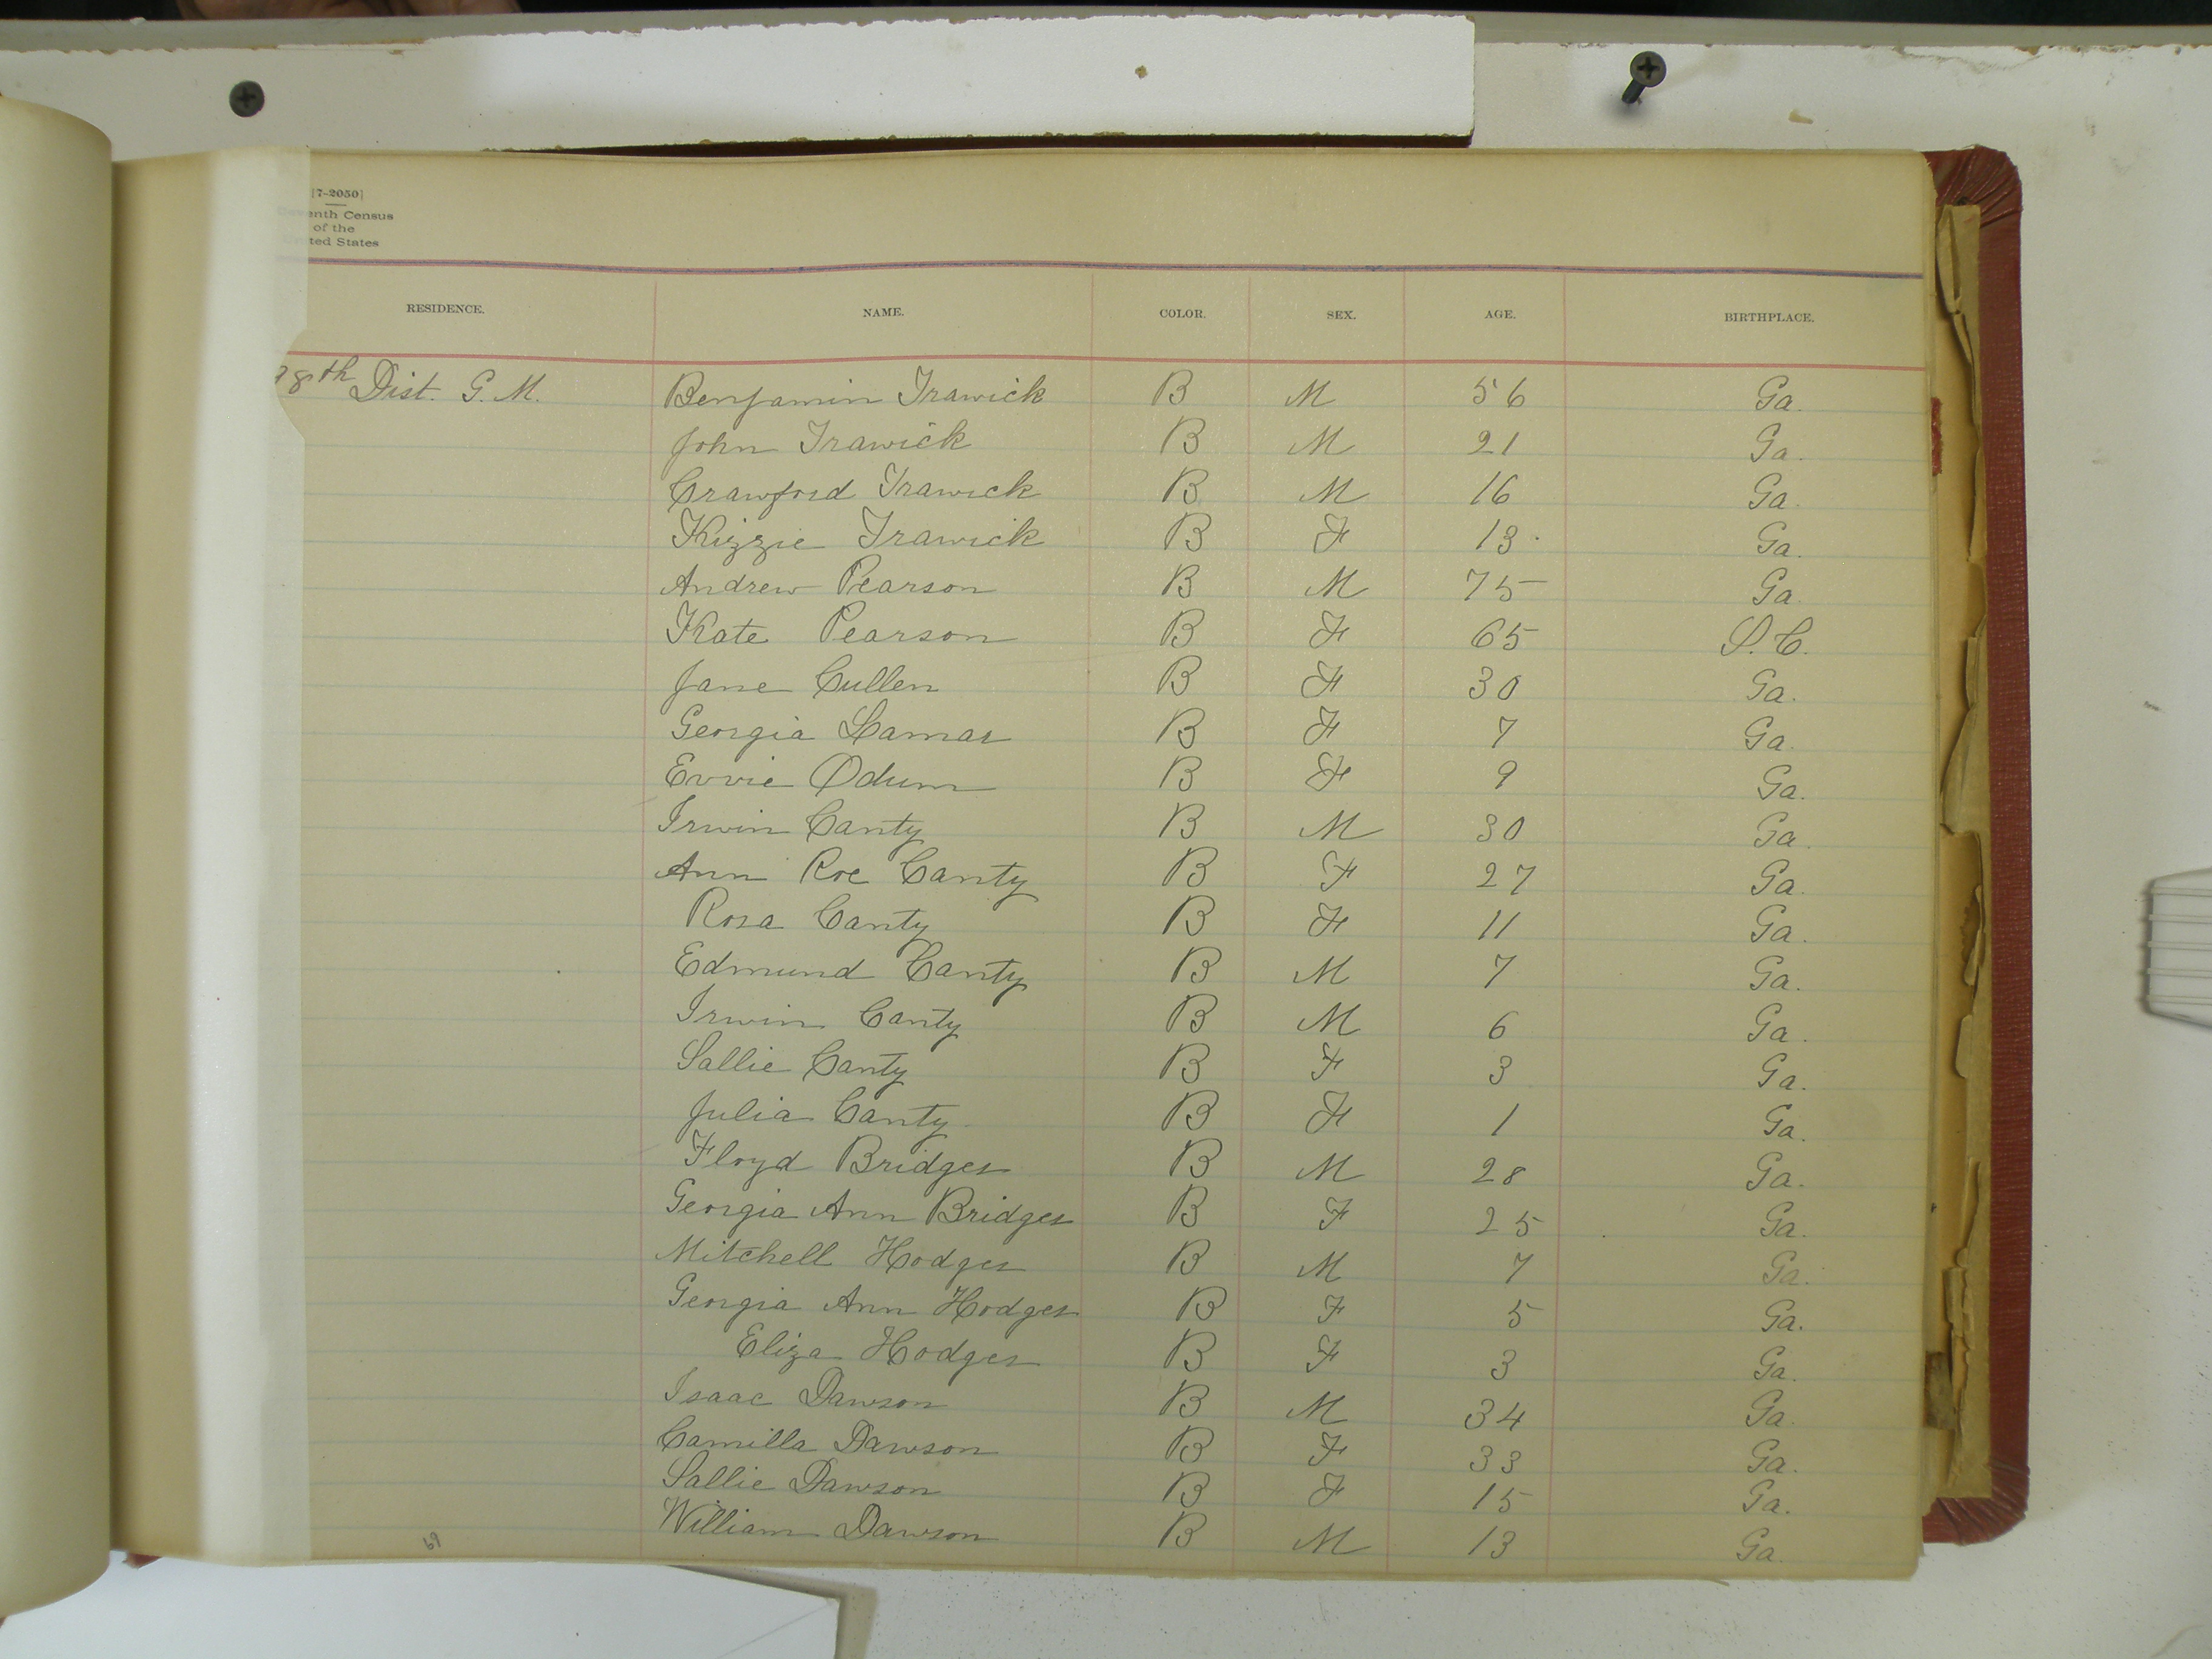 [7-2050]
enth Census
of the
ted States
RESIDENCE. NAME. COLOR. SEX. AGE. BIRTHPLACE.
8th Dist. G. M. Benjamin Trawick B M 56 Ga.
John Trawick B M 21 Ga.
Crawford Trawick B M 16 Ga.
Kizzie Trawick B F 13 Ga.
Andrew Pearson B M 75 Ga
Kate Pearson B F 65 S.C.
Jane Cullen B F 30 Ga.
Georgia Lamar B F 7 Ga.
Evvie Odum B F 9 Ga.
Irwin Canty B M 30 Ga.
Ann Roe Canty B F 27 Ga.
Rosa Canty B F 11 Ga.
Edmund Canty B M 7 Ga.
Irwin Canty B M 6 Ga.
Sallie Canty B F 3 Ga.
Julia Canty B F 1 Ga.
Floyd Bridges B M 28 Ga.
Georgia Ann Bridges B F 25 Ga.
Mitchell Hodges B M 7 Ga.
Georgia Ann Hodges B F 5 Ga.
Eliza Hodges B F 3 Ga.
Isaac Dawson B M 34 Ga.
Camilla Dawson B F 33 Ga.
Sallie Dawson B F 15 Ga.
William Dawson B M 13 Ga.